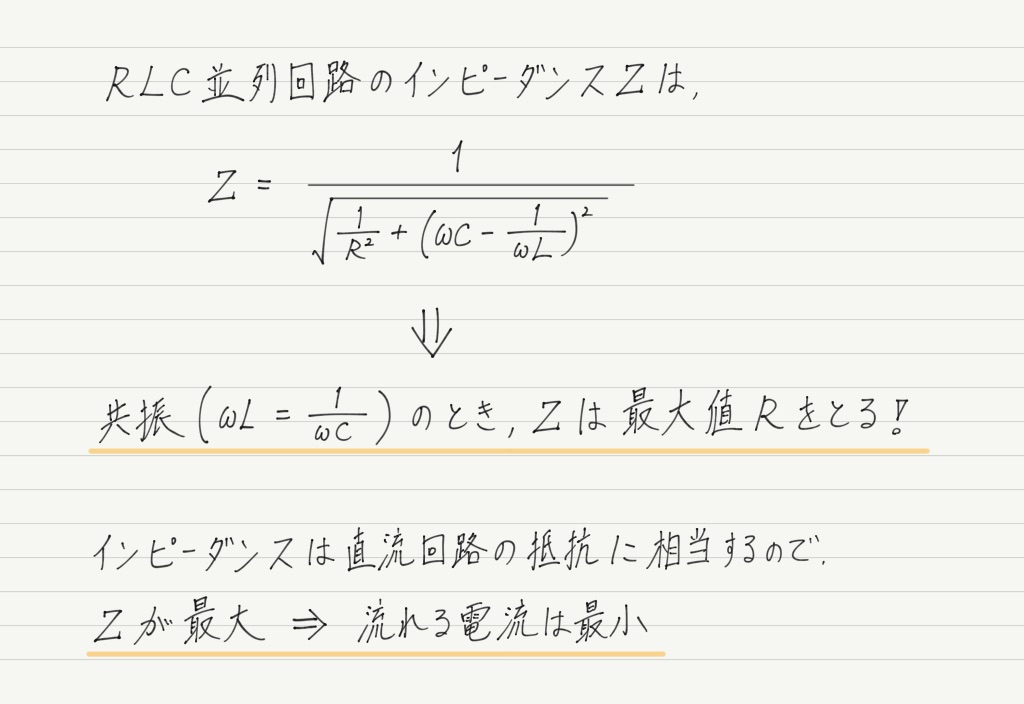 RLC並列回路のインピーダンスZは,
Z = 1 / √(1/R² + (ωC - 1/ωL)²)
⇓
共振(ωL = 1/ωC)のとき, Zは最大値Rをとる!
インピーダンスは直流回路の抵抗に相当するので.
Zが最大 ⇒ 流れる電流は最小